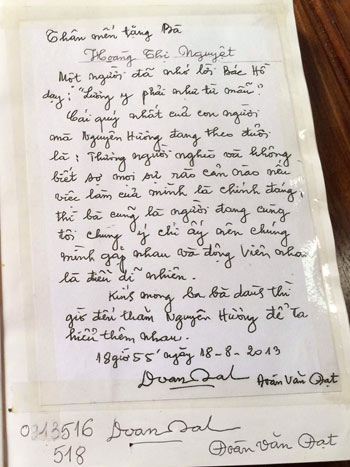 Thân mến tặng Bà
Hoàng Thị Nguyệt
Một người đã nhớ lời Bác Hồ
dạy: "Lương y phải như từ mẫu".
Cái quý nhất của con người
mà Nguyên Hương đang theo đuổi
là: Thương người nghèo và không
biết sợ mọi sự rào cản nào nếu
việc làm của mình là chính đáng,
thì bà cũng là người đang cùng
tôi chung ý chí ấy nên chúng
mình gặp nhau và động viên nhau
là điều dĩ nhiên.
Kính mong ba bà dành thì
giờ đến thăm Nguyên Hương để ta
hiểu thêm nhau.
18 giờ 55' ngày 18-8-2013
Doan Dat Đoán Văn Đạt
0313516 Doan Dat
518 Đoán Văn Đạt